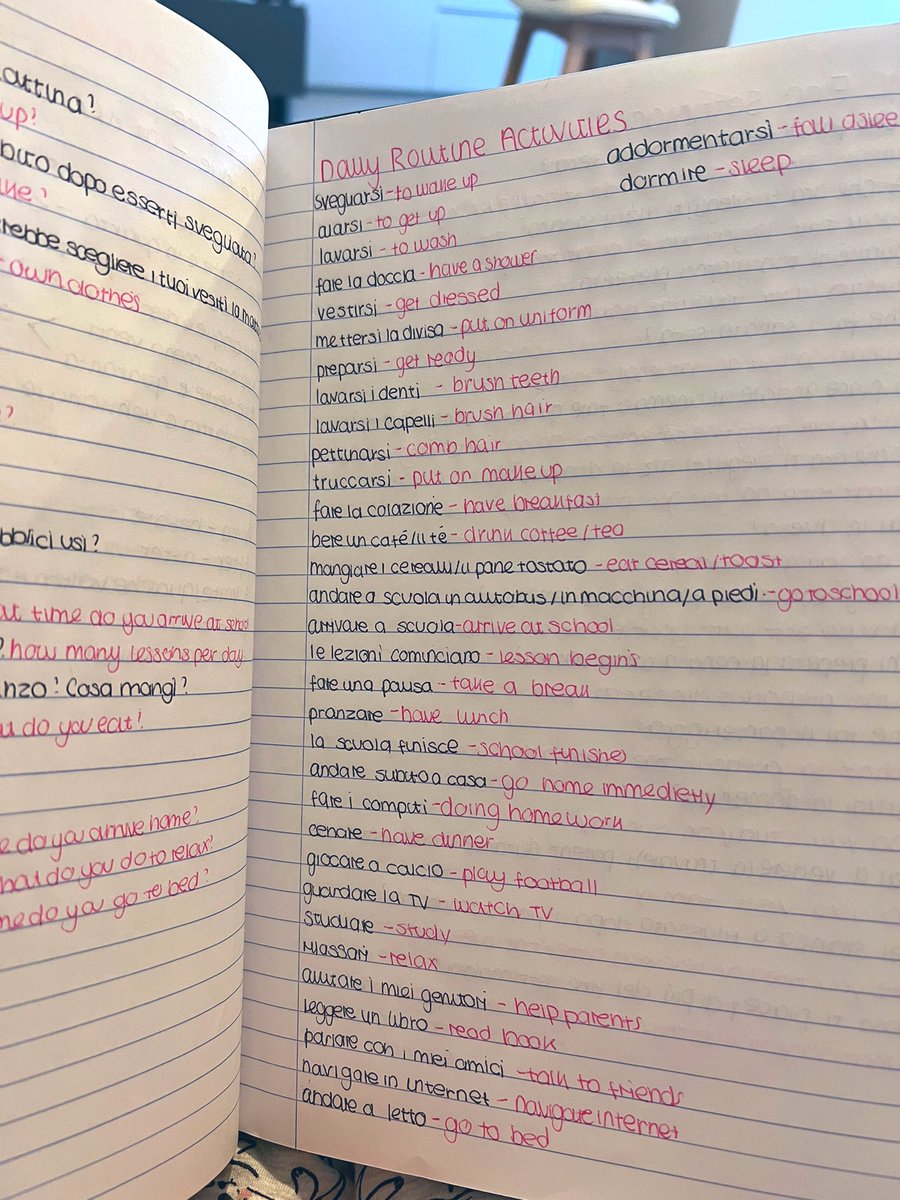 attina?
up?
bito dopo esserti svegliata?
me?
trebbe scegliere i tuoi vestiti la
own clothes
?
bblici usi?
at time do you arrive at school
? how many lessons per day
nzo? Cosa mangi?
do you eat?
e do you arrive home?
hat do you do to relax?
me do you go to bed?
Daily Routine Activities
svegliarsi - to wake up
alarsi - to get up
lavarsi - to wash
fare la doccia - have a shower
vestirsi - get dressed
mettersi la divisa - put on uniform
preparsi - get ready
lavarsi i denti - brush teeth
lavarsi i capelli - brush hair
pettinarsi - comb hair
truccarsi - put on make up
fare la colazione - have breakfast
bere un café/il té - drink coffee/tea
mangiare i cereali/il pane tostato - eat cereal/toast
andare a scuola in autobus/in macchina/a piedi - go to school
arrivare a scuola - arrive at school
le lezioni cominciano - lesson begins
fare una pausa - take a break
pranzare - have lunch
la scuola finisce - school finishes
andare subito a casa - go home immedietly
fare i compiti - doing homework
cenare - have dinner
giocare a calcio - play football
guardare la TV - watch TV
studiare - study
rilassari - relax
aiutare i miei genitori - help parents
leggere un libro - read book
parlare con i miei amici - talk to friends
navigare in internet - navigate internet
andare a letto - go to bed
addormentarsi - fall aslee
dormire - sleep